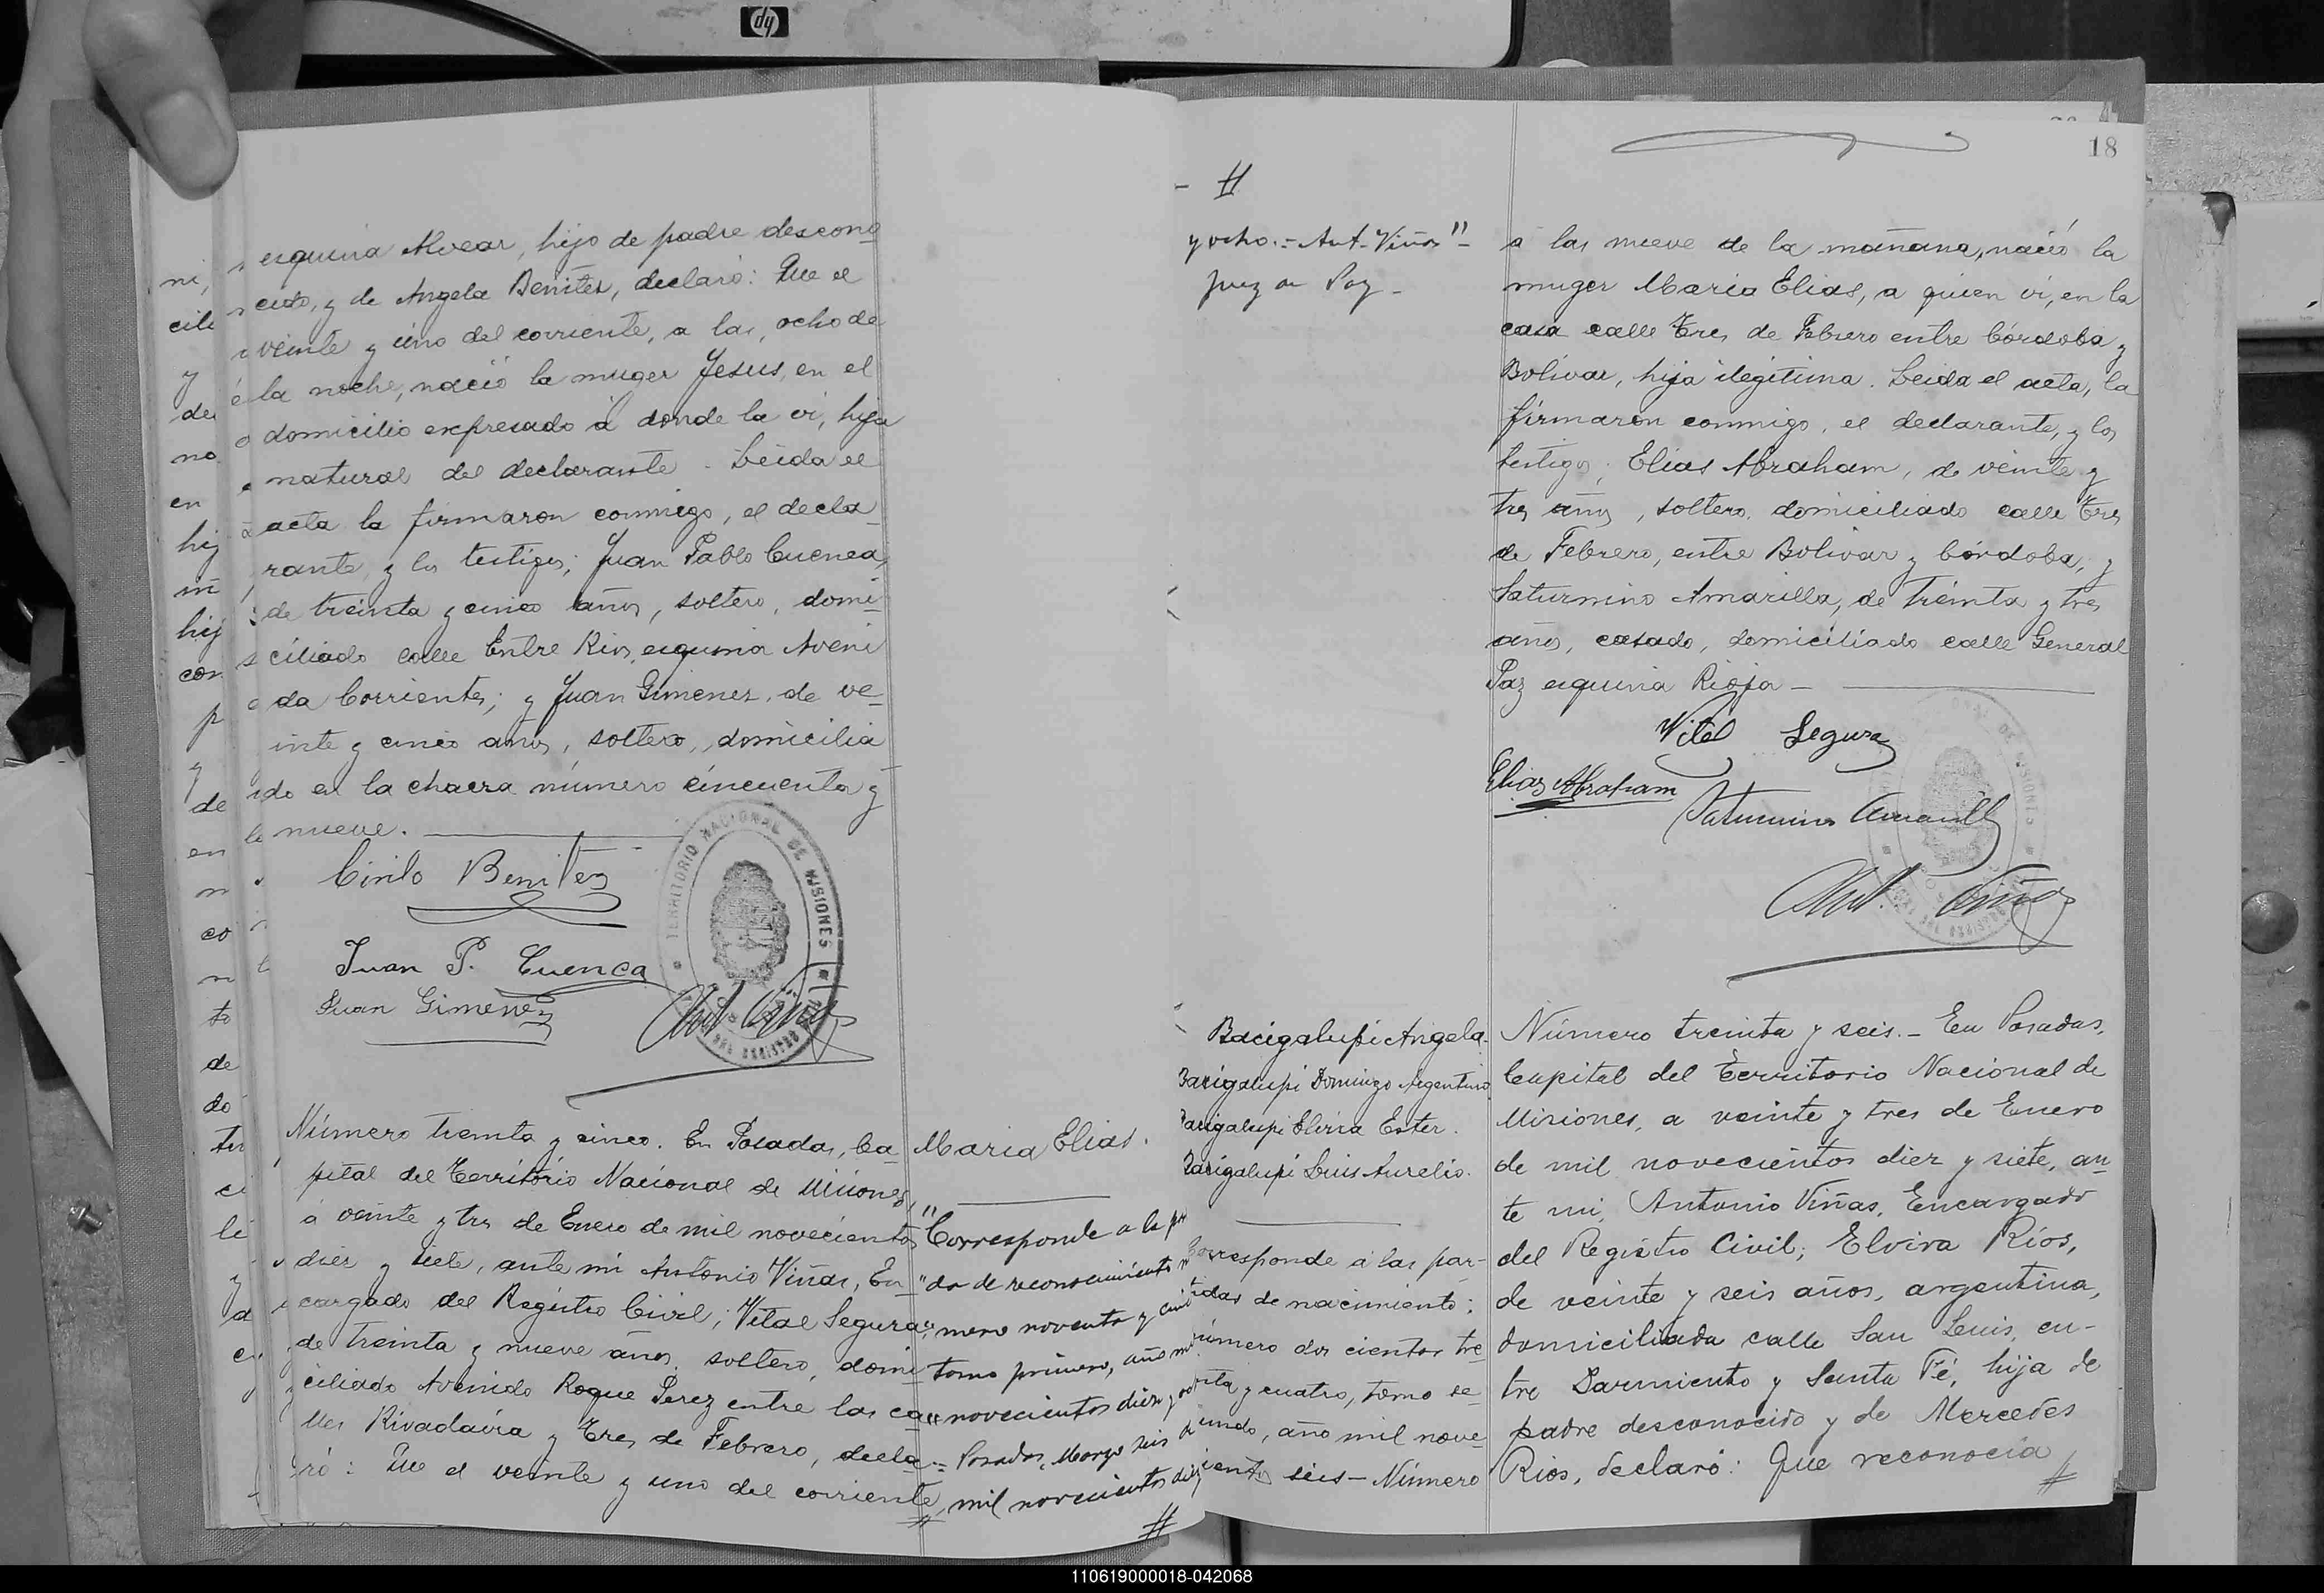 hp
esquina Alvear, hijo de padre descono
cido, y de Angela Benitez, declaró: Que el
veinte y uno del corriente, a las, ocho de
la noche, nació la muger Jesus, en el
domicilio expresado á donde la vi, hija
natural del declarante. Leida el
acta la firmaron conmigo, el decla_
rante, y los testigos; Juan Pablo Cuenca,
de treinta y cinco años, soltero, domi_
ciliado calle Entre Rios, esquina Aveni
da Corrientes; y Juan Gimenez, de ve_
inte y cinco años, soltero, domicilia
do en la chacra número cincuenta y
nueve.
Cirilo Benitez
Juan P. Cuenca
Juan Gimenez
Ant. Viñas
TERRITORIO NACIONAL DE MISIONES
Número treinta y cinco. En Posadas, Ca_
pital del Territorio Nacional de Misiones,
á veinte y tres de Enero de mil novecientos
diez y siete, ante mi Antonio Viñas, En_
cargado del Registro Civil; Vital Segura,
de treinta y nueve años, soltero, domi
ciliado Avenida Roque Perez entre las ca_
lles Rivadavia y Tres de Febrero, decla_
ró: Que el veinte y uno del corriente,
#
Maria Elias.
"Corresponde a la
"da de reconocimiento
"mero noventa y
tomo primero, año
"novecientos diez y
= Posadas, Marzo seis
mil novecientos diez
#
18
- #
y ocho.=Ant. Viñas"-
Juez de Paz_
á las nueve de la mañana, nació la
muger Maria Elias, a quien vi, en la
casa calle Tres de Febrero entre Córdoba y
Bolivar, hija ilegitima. Leida el acta, la
firmaron conmigo, el declarante, y los
testigos; Elias Abraham, de veinte y
tres años, soltero, domiciliado calle Tres
de Febrero, entre Bolivar y Córdoba; y
Saturnino Amarilla, de treinta y tres
años, casado, domiciliado calle General
Paz esquina Rioja_
Vital Segura
Elias Abraham
Saturnino Amarilla
Ant. Viñas
Bacigalupi Angela.
Bacigalupi Domingo Argentino
Bacigalupi Elvira Ester.
Bacigalupi Luis Aurelio.
Corresponde á las par-
tidas de nacimiento:
número dos cientos tre_
inta y cuatro, tomo se_
gundo, año mil nove_
cientos seis - Número
Número treinta y seis.- En Posadas,
Capital del Territorio Nacional de
Misiones, a veinte y tres de Enero
de mil novecientos diez y siete, an_
te mi, Antonio Viñas, Encargado
del Registro Civil; Elvira Ríos,
de veinte y seis años, argentina,
domiciliada calle San Luis, en-
tre Sarmiento y Santa Fé, hija de
padre desconocido y de Mercedes
Rios, declaró: Que reconocía
#
110619000018-042068